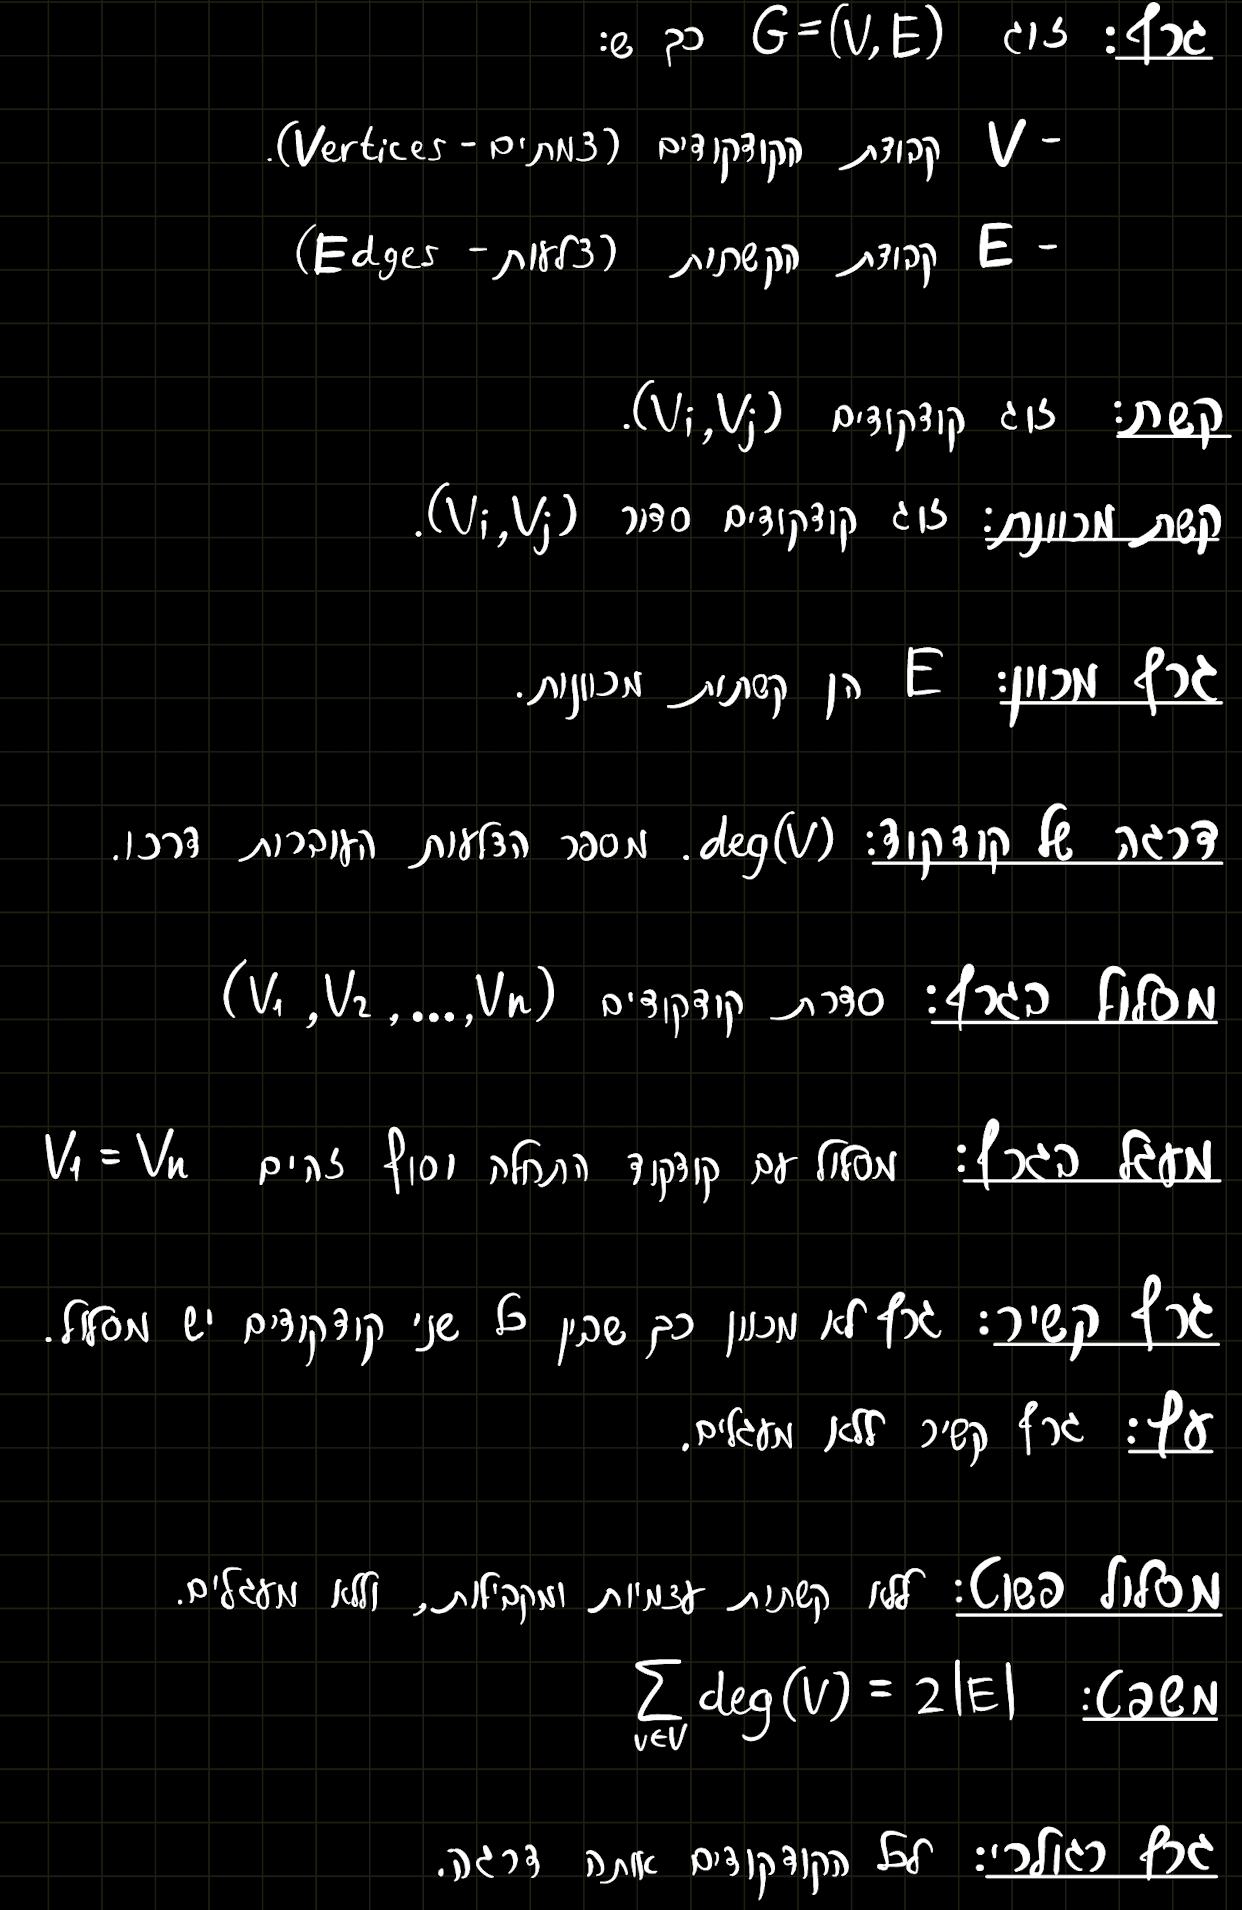 גרף: זוג G=(V,E) כך ש:
- V קבוצת הקודקודים (צמתים - Vertices).
- E קבוצת הקשתות (צלעות - Edges)
קשת: זוג קודקודים (Vi,Vj).
קשת מכוונת: זוג קודקודים סדור (Vi,Vj).
גרף מכוון: E הן קשתות מכוונות.
דרגה של קודקוד: deg(V). מספר הצלעות העוברות דרכו.
מסלול בגרף: סדרת קודקודים (V1,V2,...,Vn)
מעגל בגרף: מסלול עם קודקוד התחלה וסוף זהים V1=Vn
גרף קשיר: גרף לא מכוון כך שבין כל שני קודקודים יש מסלול.
עץ: גרף קשיר ללא מעגלים.
מסלול פשוט: ללא קשתות עצמיות ומקבילות, וללא מעגלים.
משפט: ∑v∈V deg(V) = 2|E|
גרף רגולרי: לכל הקודקודים אותה דרגה.